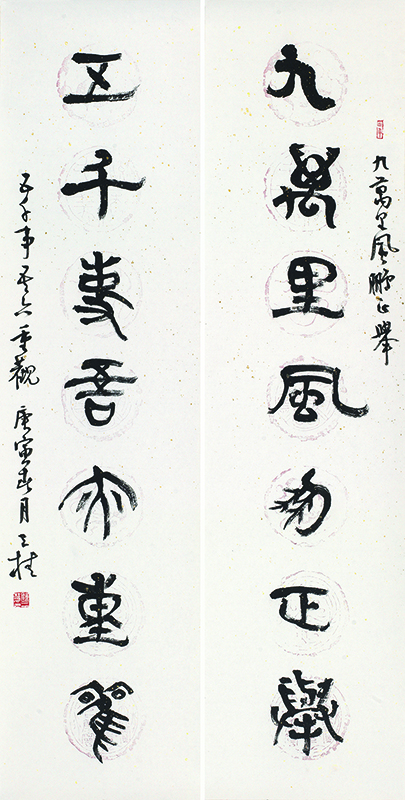 九萬里風鵬正舉
九萬里風鵬正舉
五千事吾亦重雚
五千事吾亦重觀 庚寅春月